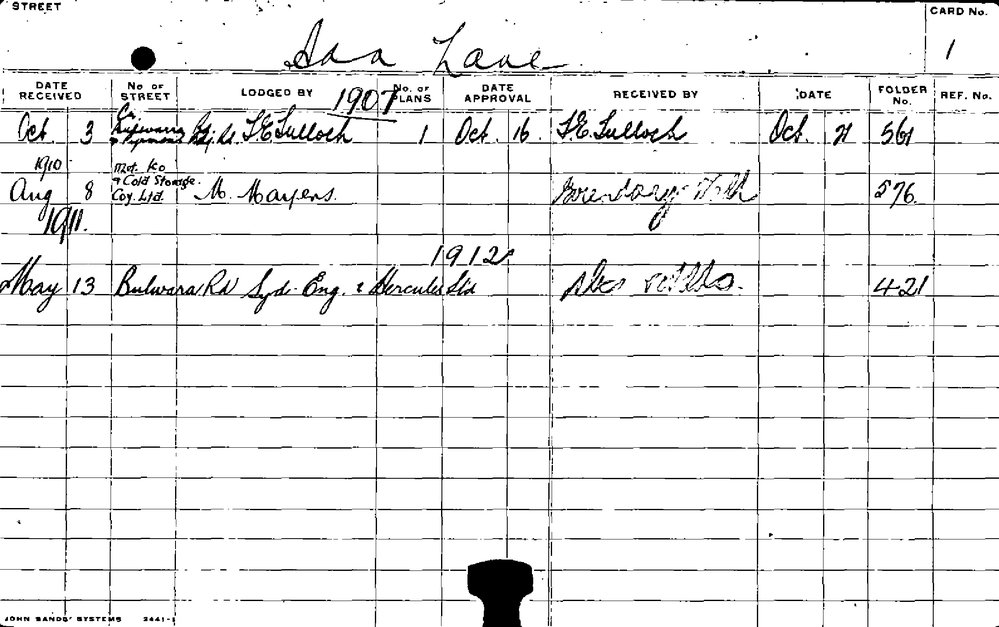 STREET
CARD No.
Ada Lane
1
DATE RECEIVED No OF STREET LODGED BY No. OF PLANS DATE APPROVAL RECEIVED BY DATE FOLDER No. REF. No.
1907
Oct. 3 T. E. Tulloch 1 Oct. 16. T. E. Tulloch Oct. 21 561
1910
Met. Ice
& Cold Storage.
Aug 8 Coy. Ltd. M. Mayers. Boundary 576.
1911.
1912
May 13 Bulwara Rd Syd. Eng. & Hercules Ltd 421
JOHN SANDS' SYSTEMS 2441-1